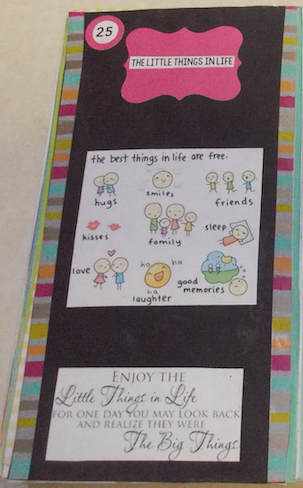 25
THE LITTLE THINGS IN LIFE
the best things in life are free.
hugs
smiles
friends
kisses
family
sleep
love
ha ha
ha
laughter
good
memories
ENJOY THE
Little Things in Life
FOR ONE DAY YOU MAY LOOK BACK
AND REALIZE THEY WERE
The Big Things